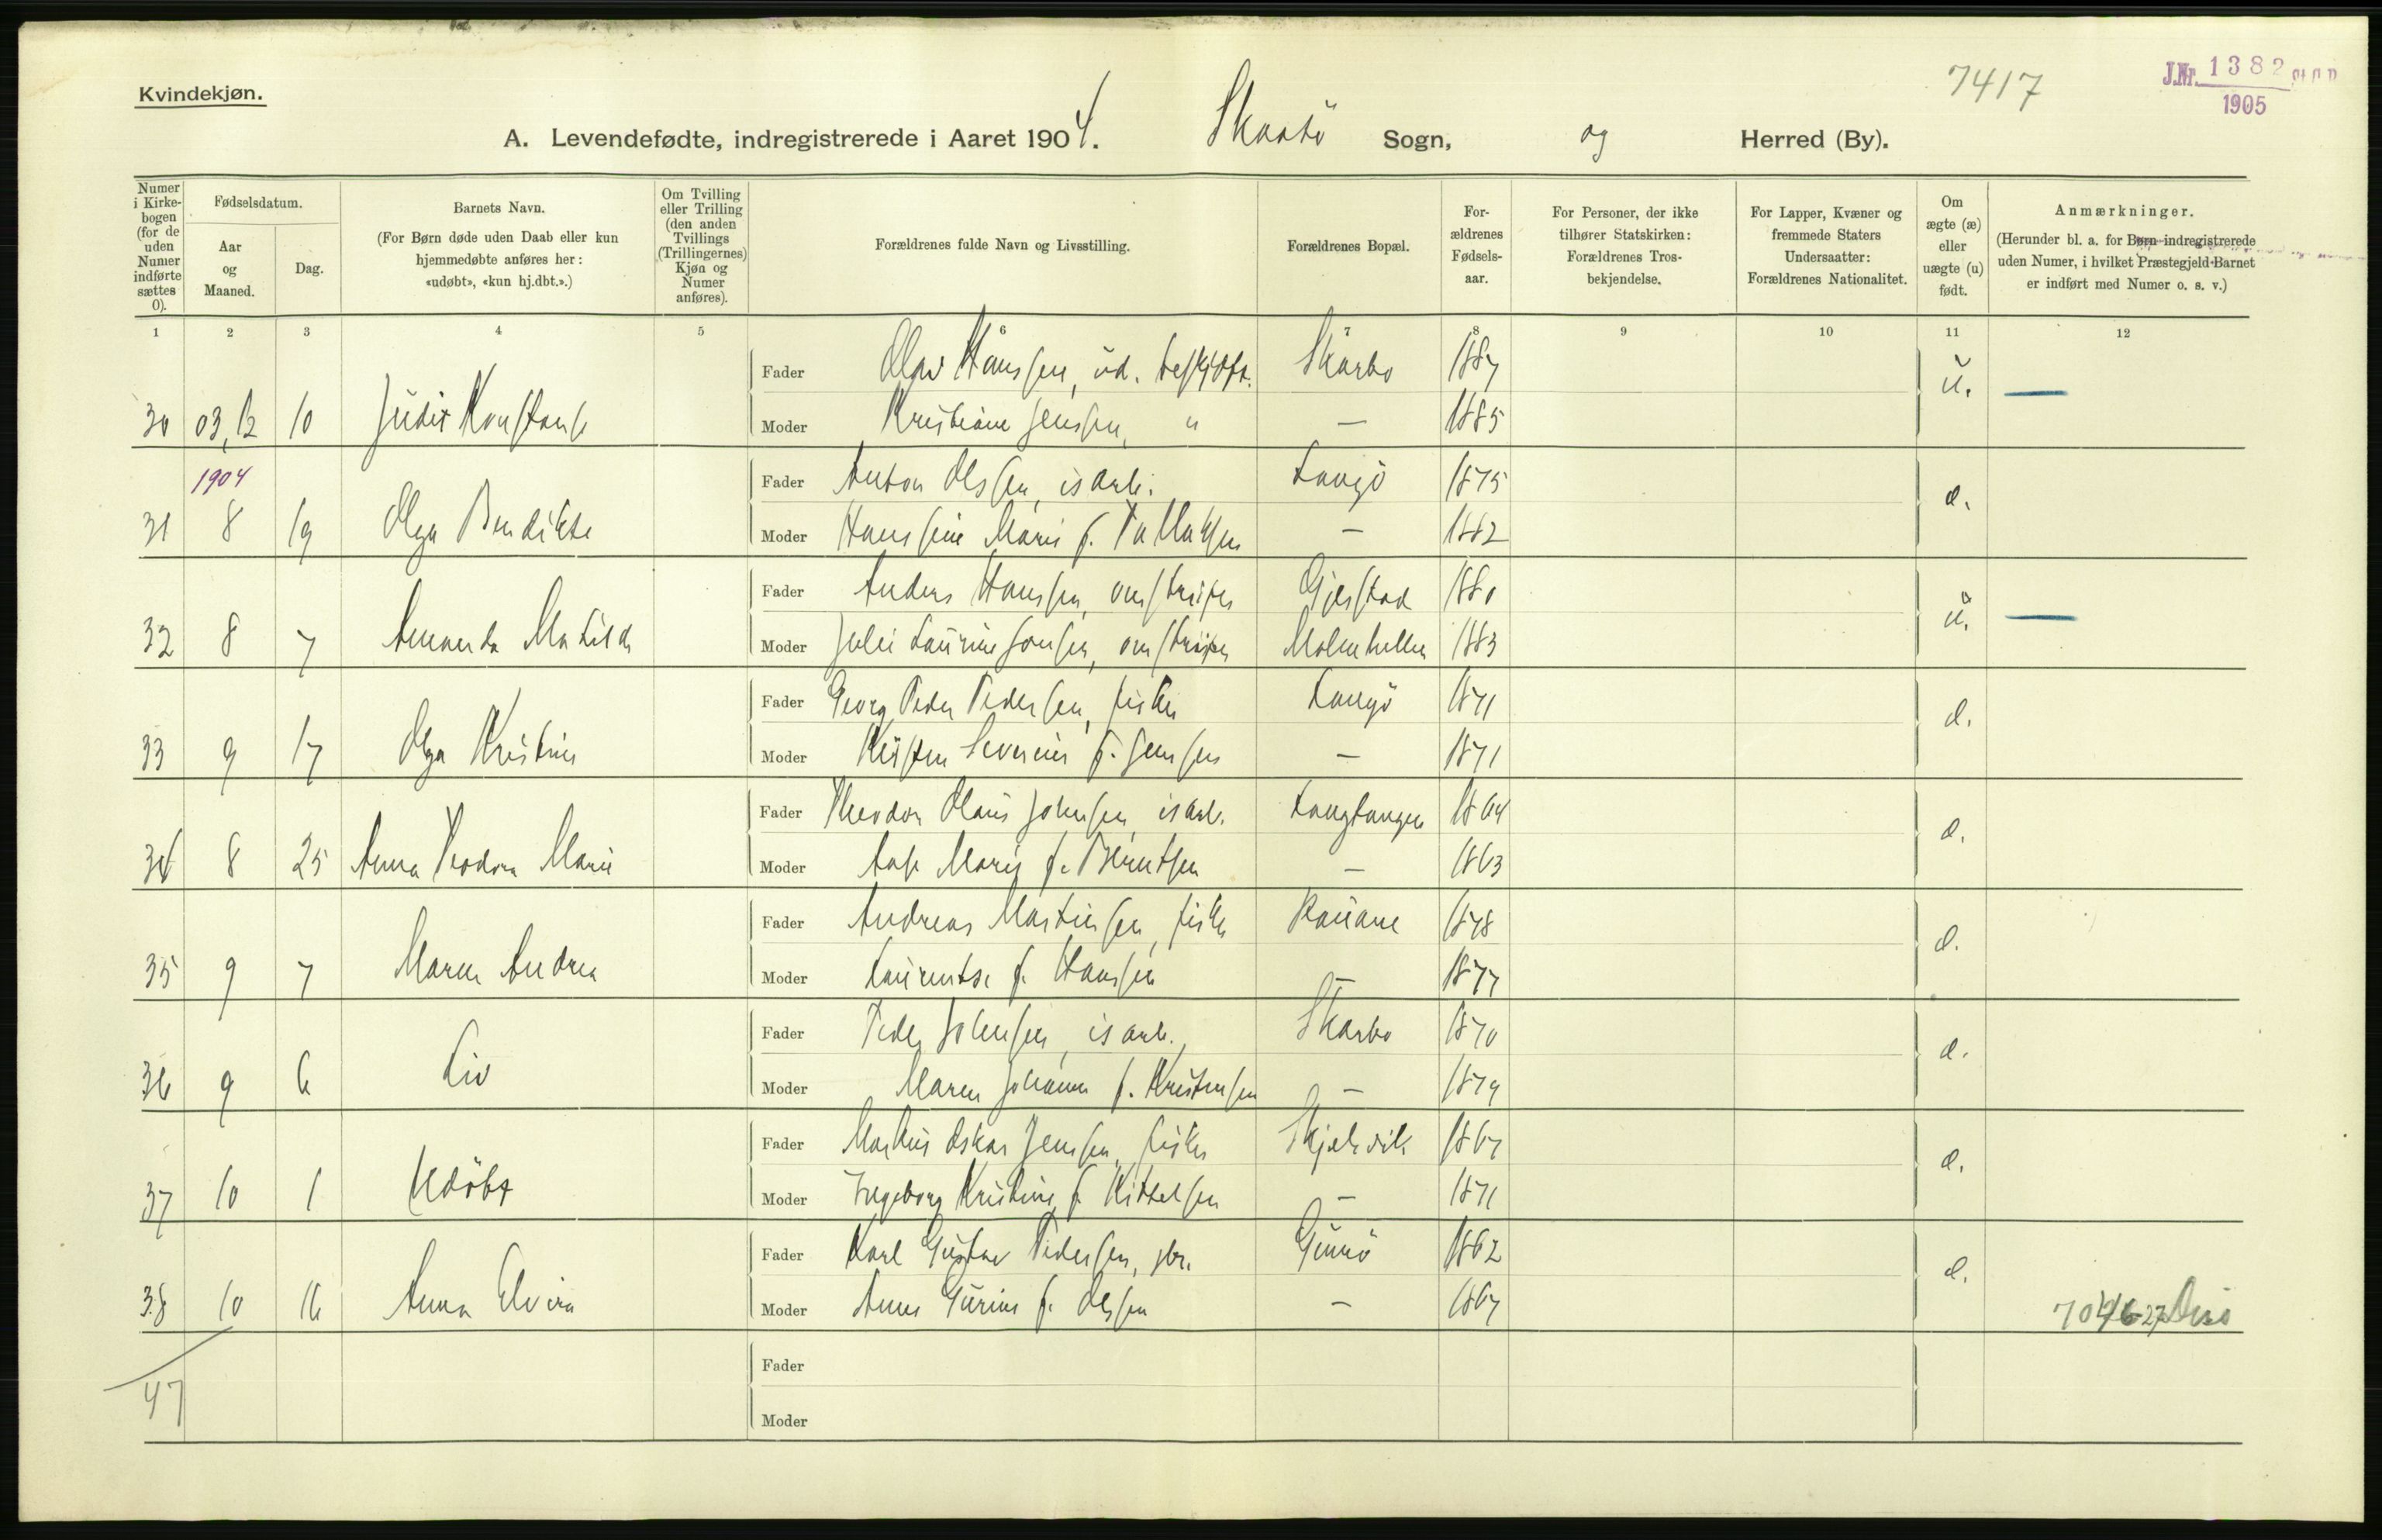 Kvindekjøn.
7417
J.Nr. 1382
1905
A. Levendefødte, indregistrerede i Aaret 1904. Skaatö Sogn, og Herred (By).
Numer i Kirkebogen (for de uden Numer indførte sættes 0).
Fødselsdatum.
Aar og Maaned.
Dag.
Barnets Navn.
(For Børn døde uden Daab eller kun hjemmedøbte anføres her: «udøbt», «kun hj.dbt.».)
Om Tvilling eller Trilling (den anden Tvillings (Trillingernes) Kjøn og Numer anføres).
Forældrenes fulde Navn og Livsstilling.
Forældrenes Bopæl.
Forældrenes Fødselsaar.
For Personer, der ikke tilhører Statskirken: Forældrenes Trosbekjendelse.
For Lapper, Kvæner og fremmede Staters Undersaatter: Forældrenes Nationalitet.
Om ægte (æ) eller uægte (u) født.
Anmærkninger.
(Herunder bl. a. for Børn indregistrerede uden Numer, i hvilket Præstegjeld Barnet er indført med Numer o. s. v.)
1 2 3 4 5 6 7 8 9 10 11 12
Fader Olav Hanssen, ud. beskjæft. Skarbo 1887 u. —
30 03,12 10 Judit Konstanse Moder Kristiane Jenssen, " — 1885
1904
Fader Anton Olssen, isarb. Langö 1875 æ.
31 8 19 Olga Bendikte Moder Hanssine Marie f. Tallaksen — 1882
Fader Anders Hanssen, omstreifer Gjerstad 1880 u. —
32 8 7 Amanda Matilde Moder Julie Laurine Jonsen, omstreifer Molauhellen 1883
Fader Georg Peder Pedersen, fisker Langö 1871 æ.
33 9 17 Olga Kristine Moder Kirsten Severine f. Jenssen — 1871
Fader Theodor Olaus Johnsen, isarb. Langtangen 1864 æ.
34 8 25 Anna Teodora Marie Moder Aase Marie f. Berntsen — 1863
Fader Andreas Martinsen, fisker Rauane 1878 æ.
35 9 7 Maren Andrea Moder Laurentse f. Hanssen — 1877
Fader Peder Johnsen, isarb. Skarbo 1870 æ.
36 9 6 Liv Moder Maren Johanne f. Kristensen — 1879
Fader Markus Oskar Jenssen, fisker Skjelsvik 1867 æ.
37 10 1 Udöbt Moder Ingeborg Kristine f. Kittelsen — 1871
Fader Karl Gustav Pedersen, gbr. Gumö 1862 æ.
38 10 16 Anna Elvira Moder Anne Gurine f. Olssen — 1867
Fader
47
Moder